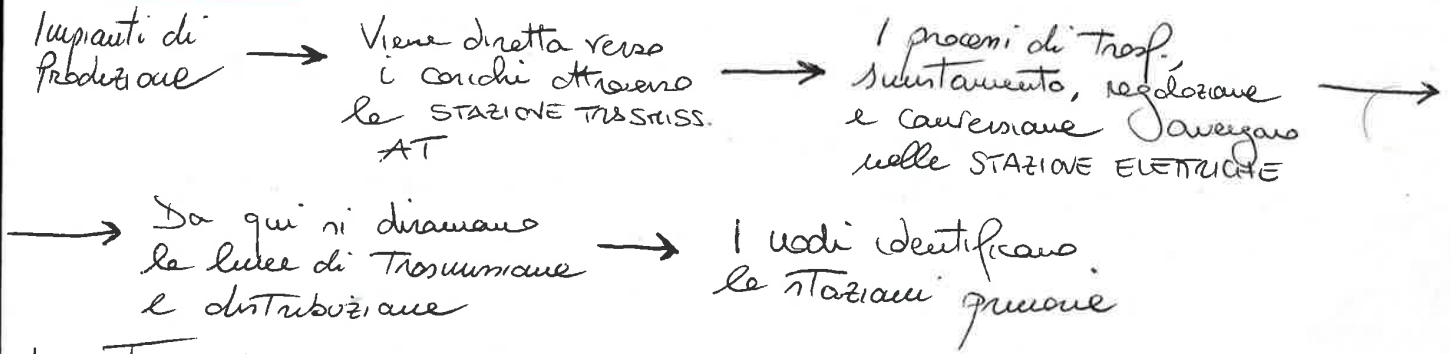 Impianti di
Produzione
Viene diretta verso
i carichi attraverso
le STAZIONE TRASMISS.
AT
I processi di Trasf.,
smistamento, regolazione
e conversione avvengano
nelle STAZIONE ELETTRICHE
Da qui si diramano
le linee di Trasmissione
e distribuzione
I nodi identificano
le stazioni primarie